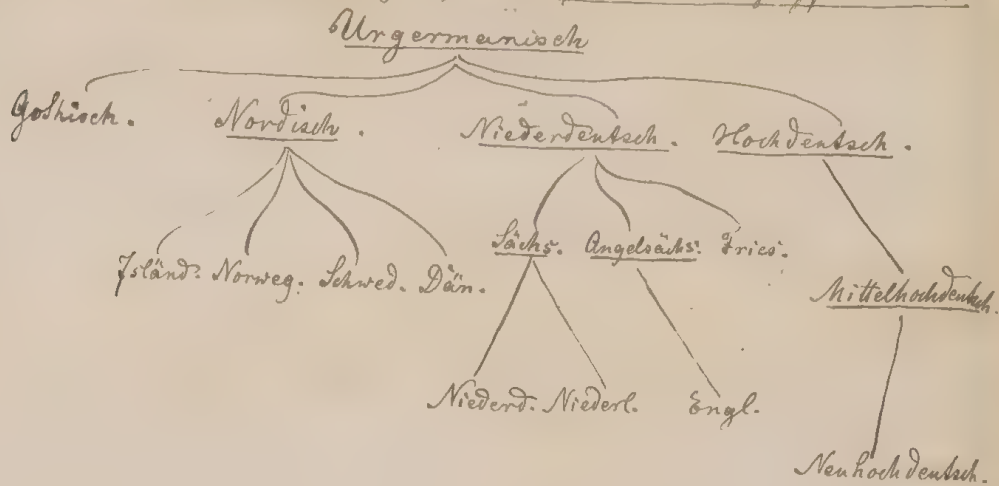 Urgermanisch
Gothisch. Nordisch. Niederdeutsch. Hochdeutsch.
Isländ. Norweg. Schwed. Dän. Sächs. Angelsächs. Fries.
Mittelhochdeutsch.
Niederd. Niederl. Engl.
Neuhochdeutsch.